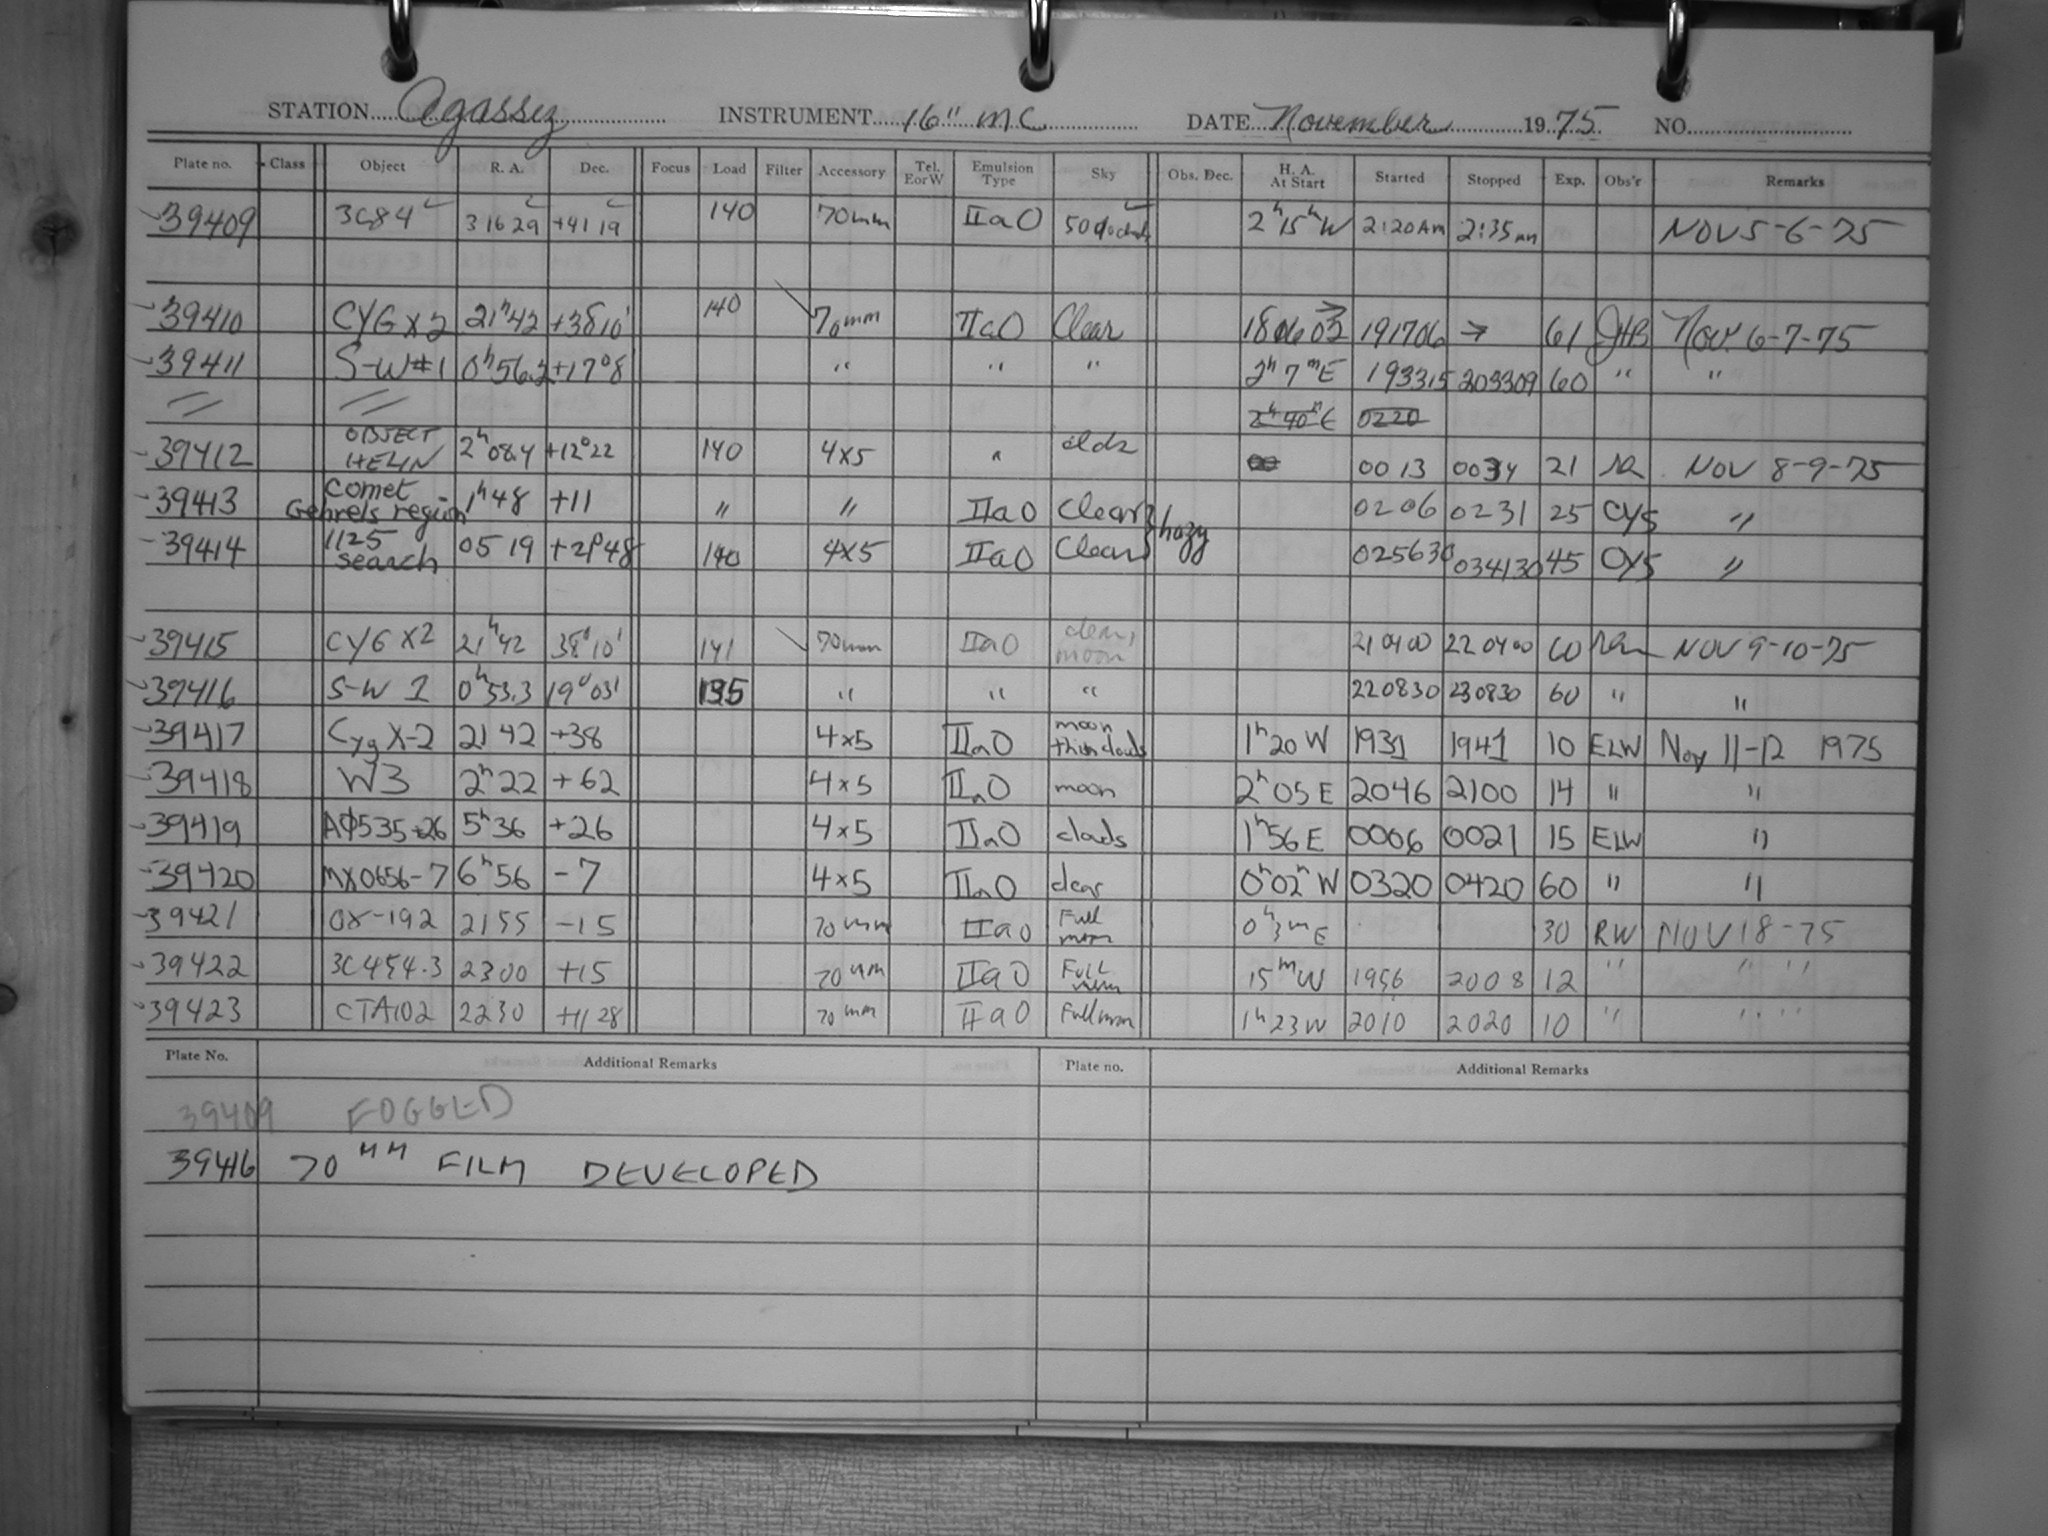 STATION Agassiz INSTRUMENT 16" MC DATE November 1975 NO.
Plate no. Class Object R. A. Dec. Focus Load Filter Accessory Tel. E or W Emulsion Type Sky Obs. Dec. H. A. At Start Started Stopped Exp. Obs'r Remarks
39409 3C84 3 16 29 +41 19 140 70mm IIaO 2h 15m W 2:20 AM 2:35 am NOV 5-6-75
39410 CYG X2 21h42 +38 10' 140 70mm IIaO Clear 191706 → 61 JHB Nov. 6-7-75
39411 S-W#1 0h56.2 +17°8 " " " 2h 7m E 193315 203309 60 " "
2h 40m E 0220
39412 OBJECT HELIN 2h 08.4 +12°22 140 4x5 " clds 00 13 0034 21 NOV 8-9-75
39413 Comet Gehrels region 1h48 +11 " " IIaO Clear hazy 0206 0231 25 CYS "
39414 1125 search 05 19 +2°48 140 4x5 IIaO Clear 025630 034130 45 CYS "
39415 CYG X2 21h42 38°10' 141 70mm IIaO clear, moon 210400 220400 60 NOV 9-10-75
39416 S-W 1 0h53.3 19°03' 135 " " " 220830 230830 60 " "
39417 Cyg X-2 21 42 +38 4x5 IIaO moon thin clouds 1h20 W 1931 1941 10 ELW Nov 11-12 1975
39418 W3 2h22 +62 4x5 IIaO moon 2h05 E 2046 2100 14 " "
39419 AΦ535+26 5h36 +26 4x5 IIaO clouds 1h56 E 0006 0021 15 ELW "
39420 MX0656-7 6h56 -7 4x5 IIaO clear 0h02m W 0320 0420 60 " "
39421 OX-192 2155 -15 70mm IIaO Full moon 0h3m E 30 RW NOV 18-75
39422 3C454.3 2300 +15 70mm IIaO Full moon 15m W 1956 2008 12 " " "
39423 CTA102 2230 +11 28 70mm IIaO Full moon 1h 23W 2010 2020 10 " " "
Plate No. Additional Remarks Plate no. Additional Remarks
39409 FOGGED
39416 70MM FILM DEVELOPED